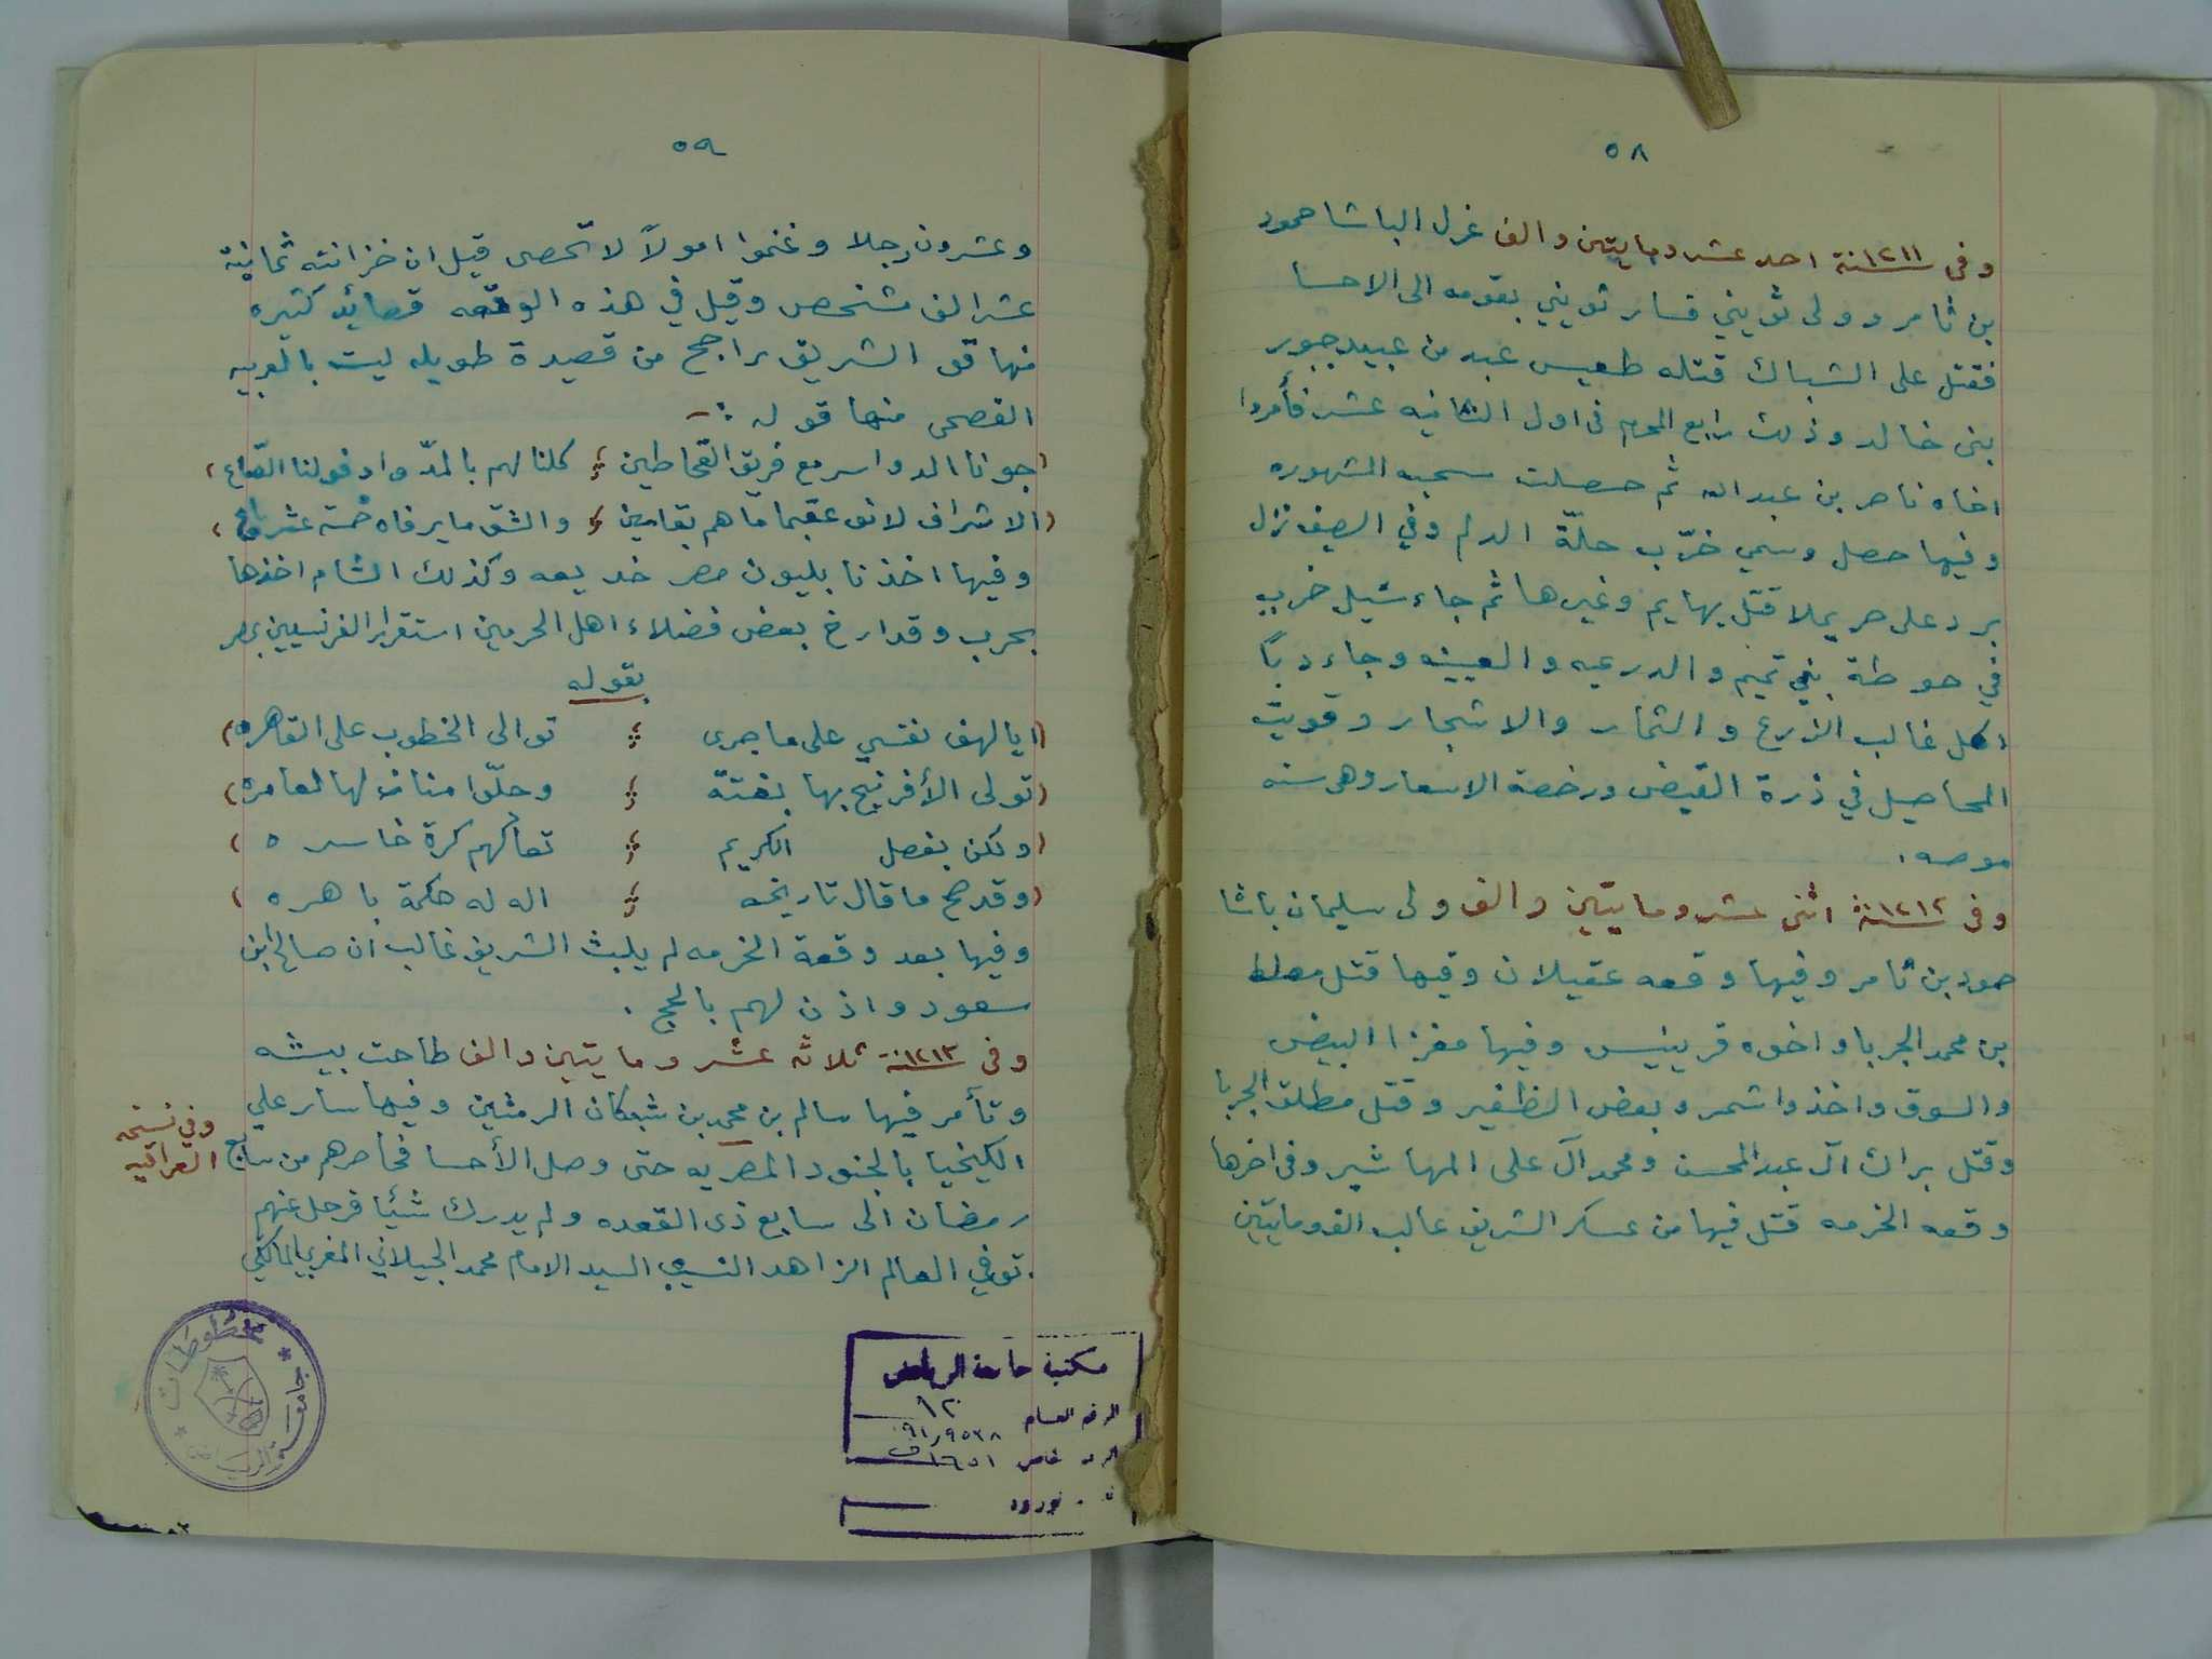 ٥٨
وفى ١٢١١سنة احد عشر ومايتين والف عزل الباشا حمود
بن ثامر وولى ثويني فسار ثويني بقومه الى الاحسا
فقتل على الشباك قتله طعيس عبد من عبيد جبور
بنى خالد وذلك رابع المحرم فى اول الثانيه عشر فأمروا
اخاه ناصر بن عبد الله ثم حصلت سحبه المشهوره
وفيها حصل وسمي خرّب حلّة الدلم وفي الصيف نزل
برد على حريملا قتل بهايم وغيرها ثم جاء سيل خرب
في حوطة بني تميم والدرعيه والعيينه وجاء دبًا
اكل غالب الزرع والثمار والاشجار وقويت
المحاصيل في ذرة القيض ورخصة الاسعار وهى سنه
موصه .
وفى ١٢١٢سنة اثنى عشر ومايتين والف ولى سليمان باشا
حمود بن ثامر وفيها وقعه عقيلان وفيها قتل مسلط
بن محمد الجربا واخوه قرينيس وفيها مغزا البيض
والسوق واخذوا شمر وبعض الظفير وقتل مطلق الجربا
وقتل براك آل عبد المحسن ومحمد آل على المهاشير وفى اخرها
وقعه الخرمه قتل فيها من عسكر الشريف غالب الف ومايتين
٥٩
وعشرون رجلا وغنموا امولاً لا تحصى قيل ان خزانته ثمانية
عشر الف مشخص وقيل في هذه الوقعه قصائد كثيره
منها قو الشريف راجح من قصيدة طويله ليت بالعربيه
الفصحى منها قوله :-
(جونا الدواسر مع فريق القحاطين ؛ كلنا لهم بالمدّ وادفولنا الصّاع)
(الاشراف لانو عقبما ما هم بقامين ؛ والشق ما يرفاه خمسة عشر باع)
وفيها اخذ نابليون مصر خديعه وكذلك الشام اخذها
بحرب وقد ارخ بعض فضلاء اهل الحرمين استقرار الفرنسيين بمصر
بقوله
(ايا لهف نفسي على ما جرى ؛ توالى الخطوب على القاهره)
(تولى الأفرنج بها بغتة ؛ وحلّوا منازلها العامره)
(ولكن بفضل الكريم ؛ تعالهم كرة خاسره)
(وقد صح ما قال تاريخه ؛ اله له حكمة باهره)
وفيها بعد وقعة الخرمه لم يلبث الشريف غالب ان صالح ابن
سعود واذن لهم بالحج .
وفى ١٢١٣سنة ثلاثه عشر ومايتين والف طاحت بيشه
وتأمر فيها سالم بن محمد بن شبكان الرمثين وفيها سار علي
الكيخيا بالجنود المصريه حتى وصل الأحسا فحاصرهم من سابع
وفي نسخه
العراقيه
رمضان الى سابع ذى القعده ولم يدرك شيئا فرحل عنهم
. توفي العالم الزاهد النسيب السيد الامام محمد الجيلاني المغربي المالكي
مخطوطات * جامعة الرياض *
مكتبة جامعة الرياض
الرقم العام ١٢
الرقم الخاص ٩١/٩٥٣٨
ف ١٦٥١